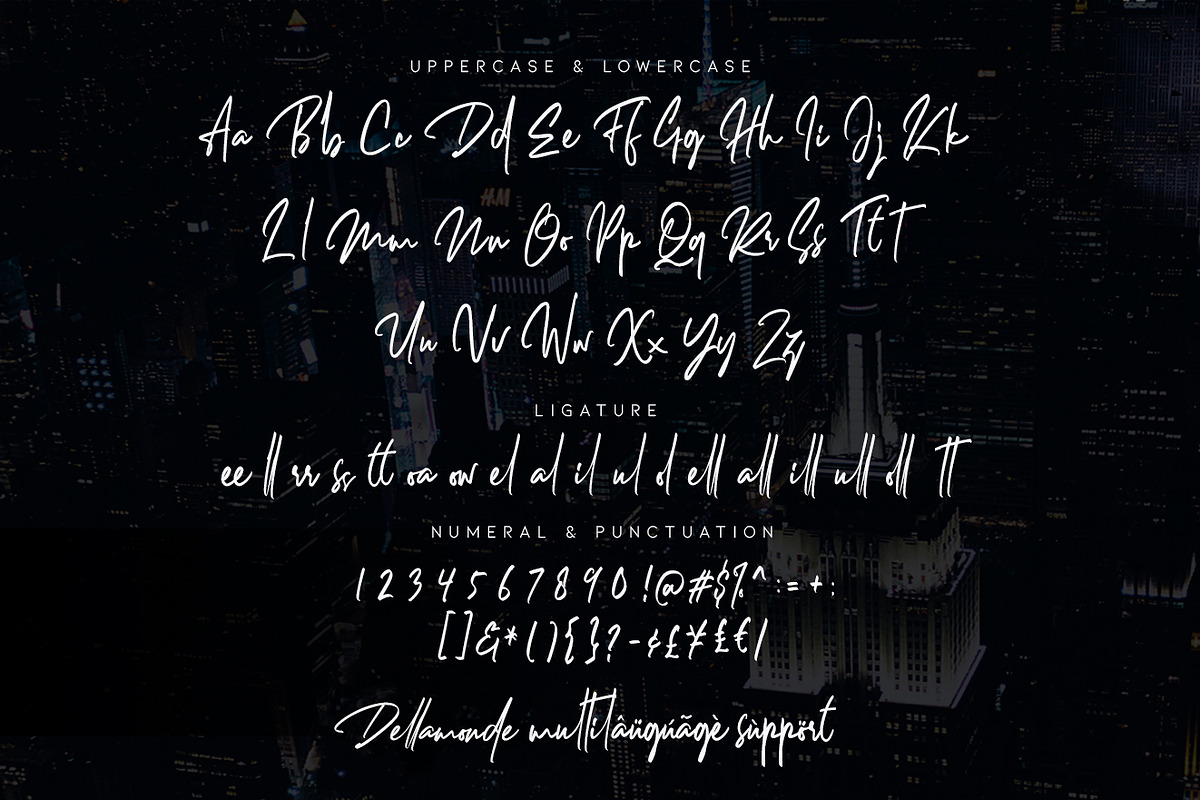 UPPERCASE & LOWERCASE
Aa Bb Cc Dd Ee Ff Gg Hh Ii Jj Kk
H&M
Ll Mm Nn Oo Pp Qq Rr Ss Tt t
Uu Vv Ww Xx Yy Zz
LIGATURE
ee ll rr ss tt oa ow el al il ul ol ell all ill ull oll tt
NUMERAL & PUNCTUATION
1 2 3 4 5 6 7 8 9 0 !@#$%^:=+;
[]&*(){}?-¢£¥₤€/
Dellamonde multilâügúãgè sùppört